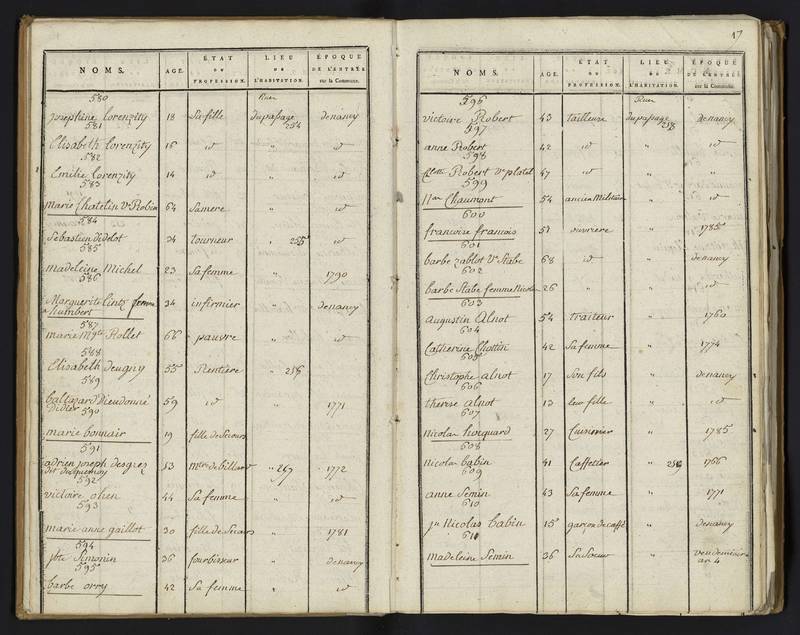 NOMS. AGE. ÉTAT OU PROFESSION. LIEU DE L'HABITATION. ÉPOQUE DE L'ENTRÉE sur la Commune.
580 Rue
josephine Lorenzity 18 Sa fille du passage 254 de nancy
581
Elisabeth Lorenzity 16 id " id
582
Emilie Lorenzity 14 id " id
583
marie Chatelin Ve Robin 64 Sa mere " id
584
Sebastien Didelot 34 tourneur " 255 id
585
madeleine Michel 23 Sa femme " 1790
586
Marguerite Lintz femme 34 infirmier " de nancy
humbert
587
marie Mgte Rollet 66 pauvre " id
588
Elisabeth Deugny 55 Rentiere " 256
589
baltazard Dieudonné 59 id " 1771
Didier 590
marie bonnair 19 fille de Secours
591
adrien joseph Desgrez 53 Mtre de billard " 267 1772
dit duquesnoy
592
victoire ohen 44 Sa femme " id
593
marie anne gaillot 30 fille de Secours " 1781
594
jbte Simonin 36 fourbisseur " de nancy
595
barbe orry 42 Sa femme " id
17
NOMS. AGE. ÉTAT OU PROFESSION. LIEU DE L'HABITATION. ÉPOQUE DE L'ENTRÉE sur la Commune.
596 Rue
victoire Robert 43 tailleuse du passage 258 de nancy
597
anne Robert 42 id " id
598
Robert Ve platel 47 id " "
599
Nas Chaumont 54 ancien Militaire " id
600
francoise francois 51 ouvriere " 1785
601
barbe zablot Ve Stabe 68 id " de nancy
602
barbe Stabe femme Nicolas 26 " " id
603
augustin Alnot 54 traiteur " 1760
604
Catherine Chottin 42 Sa femme " 1774
605
Christophe alnot 17 Son fils " de nancy
606
therese alnot 13 leur fille " id
607
Nicolas hocquard 27 Cuisinier " 1785
608
Nicolas babin 41 Caffetier " 259 1766
609
anne Semin 43 Sa femme " 1771
610
jn Nicolas babin 15 garçon de caffé " de nancy
611
madeleine Semin 36 Sa Soeur " vendemiaire
an 4